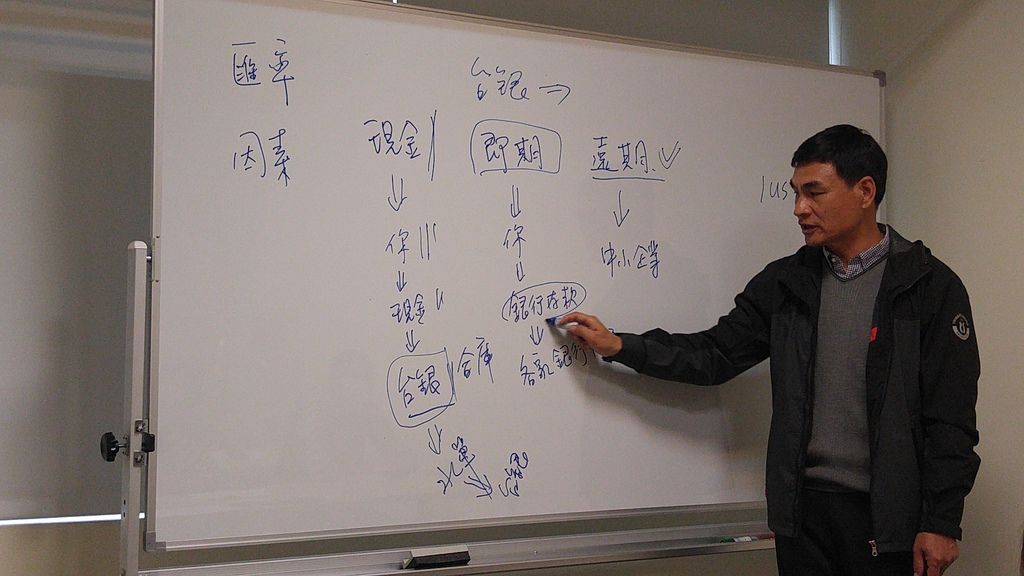 匯率
台銀⇒
因素
現金 即期 遠期
你 你 中小企業
現金 銀行存款
台銀 合庫 各家銀行
1 US